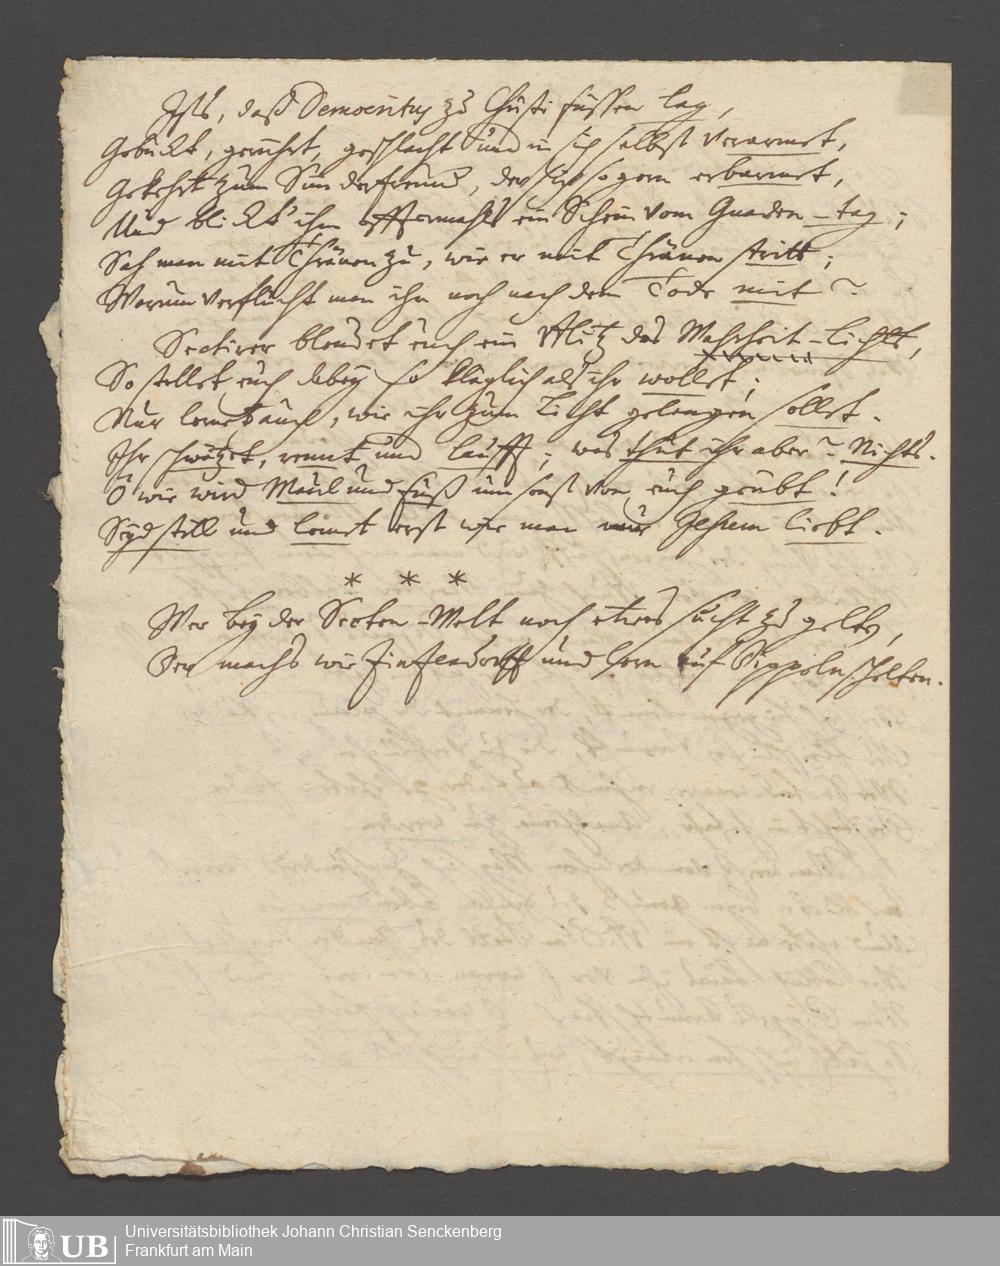 Ists, daß Democritus zu Christi füssen lag,
Gebückt, gerührt, geschlacht und in sich selbst verarmet,
Gekehrt zum Sünderfreund, der sich so gern erbarmet,
Und blickt' ihn öfftermahls ein Schein vom Gnaden-tag;
Sah man mit Thränen zu, wie er mit Thränen stritt;
Warum verflucht man ihn noch nach dem Tode mit?
Sectirer blendet euch ein Blitz das Wahrheit-Licht,
So stellet euch dabey so kläglich als ihr wollet;
Nur lernet auch, wie ihr zum Licht gelangen sollet.
Ihr schwätzet, rennt und laufft; was thut ihr aber? Nichts.
O wie wird Maul und Fuß um sonst von euch geübt!
Seyd still und lernet erst wie man nur Jesum liebt.
* * *
Wer bey der Secten-Welt noch etwas sucht zu gelten,
Der machs wie Zinzendorff und lern auf Dippeln schelten.
Universitätsbibliothek Johann Christian Senckenberg
Frankfurt am Main
UB